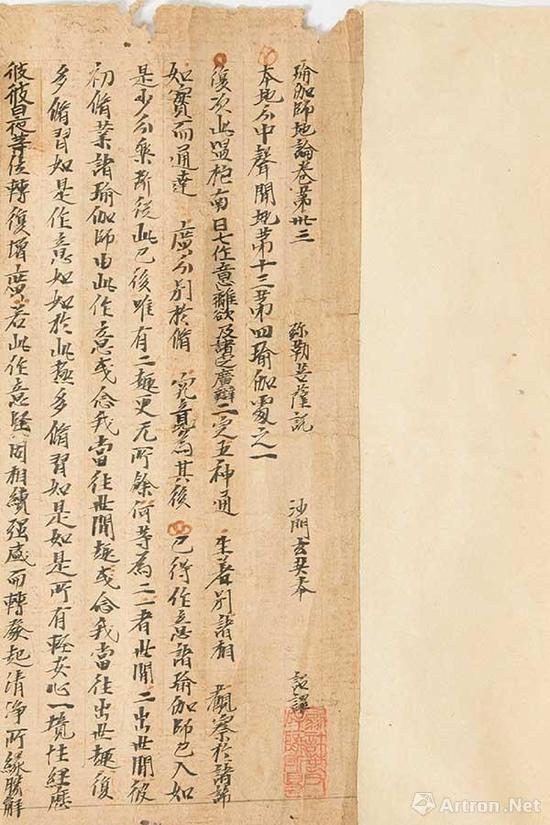 瑜伽師地論卷第卅三 弥勒菩薩說 沙門玄奘奉 詔譯
本地分中聲聞地第十三第四瑜伽處之一
復次此嗢柁南曰七作意離欲及諸定廣辯二定五神通 生差別諸相 觀察於諸諦
如實而通達 廣分別於脩 究竟為其後 已得作意諸瑜伽師已入如
是少分樂斷從此已後唯有二趣更无所餘何等為二一者世間二出世間彼
初脩業諸瑜伽師由此作意或念我當往世間趣或念我當往出世趣復
多脩習如是作意如如於此極多脩習如是如是所有輕安心一境性經歷
彼彼日夜等位轉復增廣若此作意堅固相續强盛而轉發起清淨所緣勝解
Artron.Net